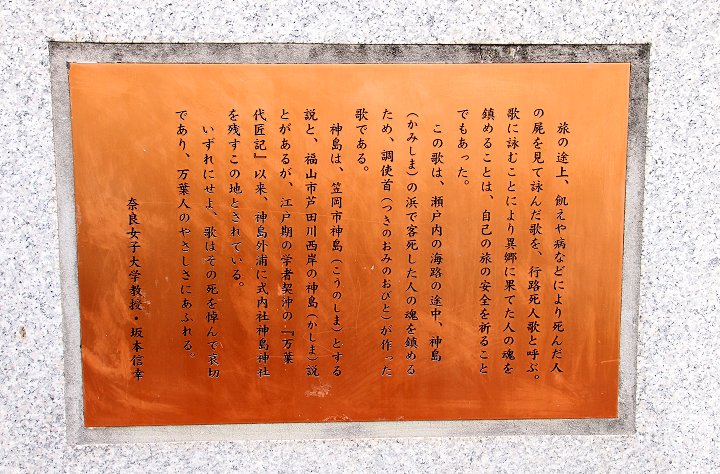 旅の途上、飢えや病などにより死んだ人
の屍を見て詠んだ歌を、行路死人歌と呼ぶ。
歌に詠むことにより異郷に果てた人の魂を
鎮めることは、自己の旅の安全を祈ること
でもあった。
この歌は、瀬戸内の海路の途中、神島
(かみしま)の浜で客死した人の魂を鎮める
ため、調使首(つきのおみのおびと)が作った
歌である。
神島は、笠岡市神島(こうのしま)とする
説と、福山市芦田川西岸の神島(かしま)説
とがあるが、江戸期の学者契沖の『万葉
代匠記』以来、神島外浦に式内社神島神社
を残すこの地とされている。
いずれにせよ、歌はその死を悼んで哀切
であり、万葉人のやさしさにあふれる。
奈良女子大学教授・坂本信幸